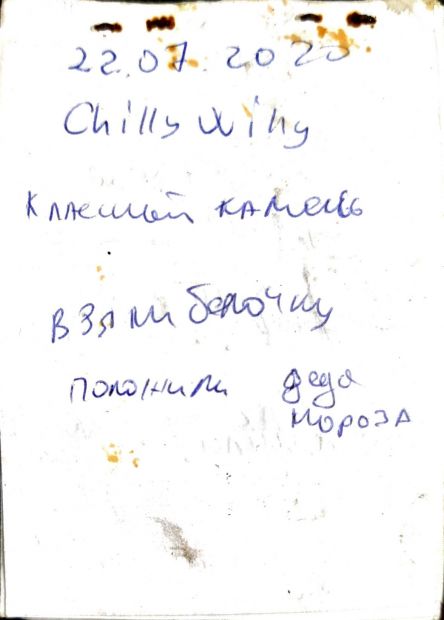 22.07.2020
Chilly Willy
Классный камень
взяли белочку
положили деда
мороза